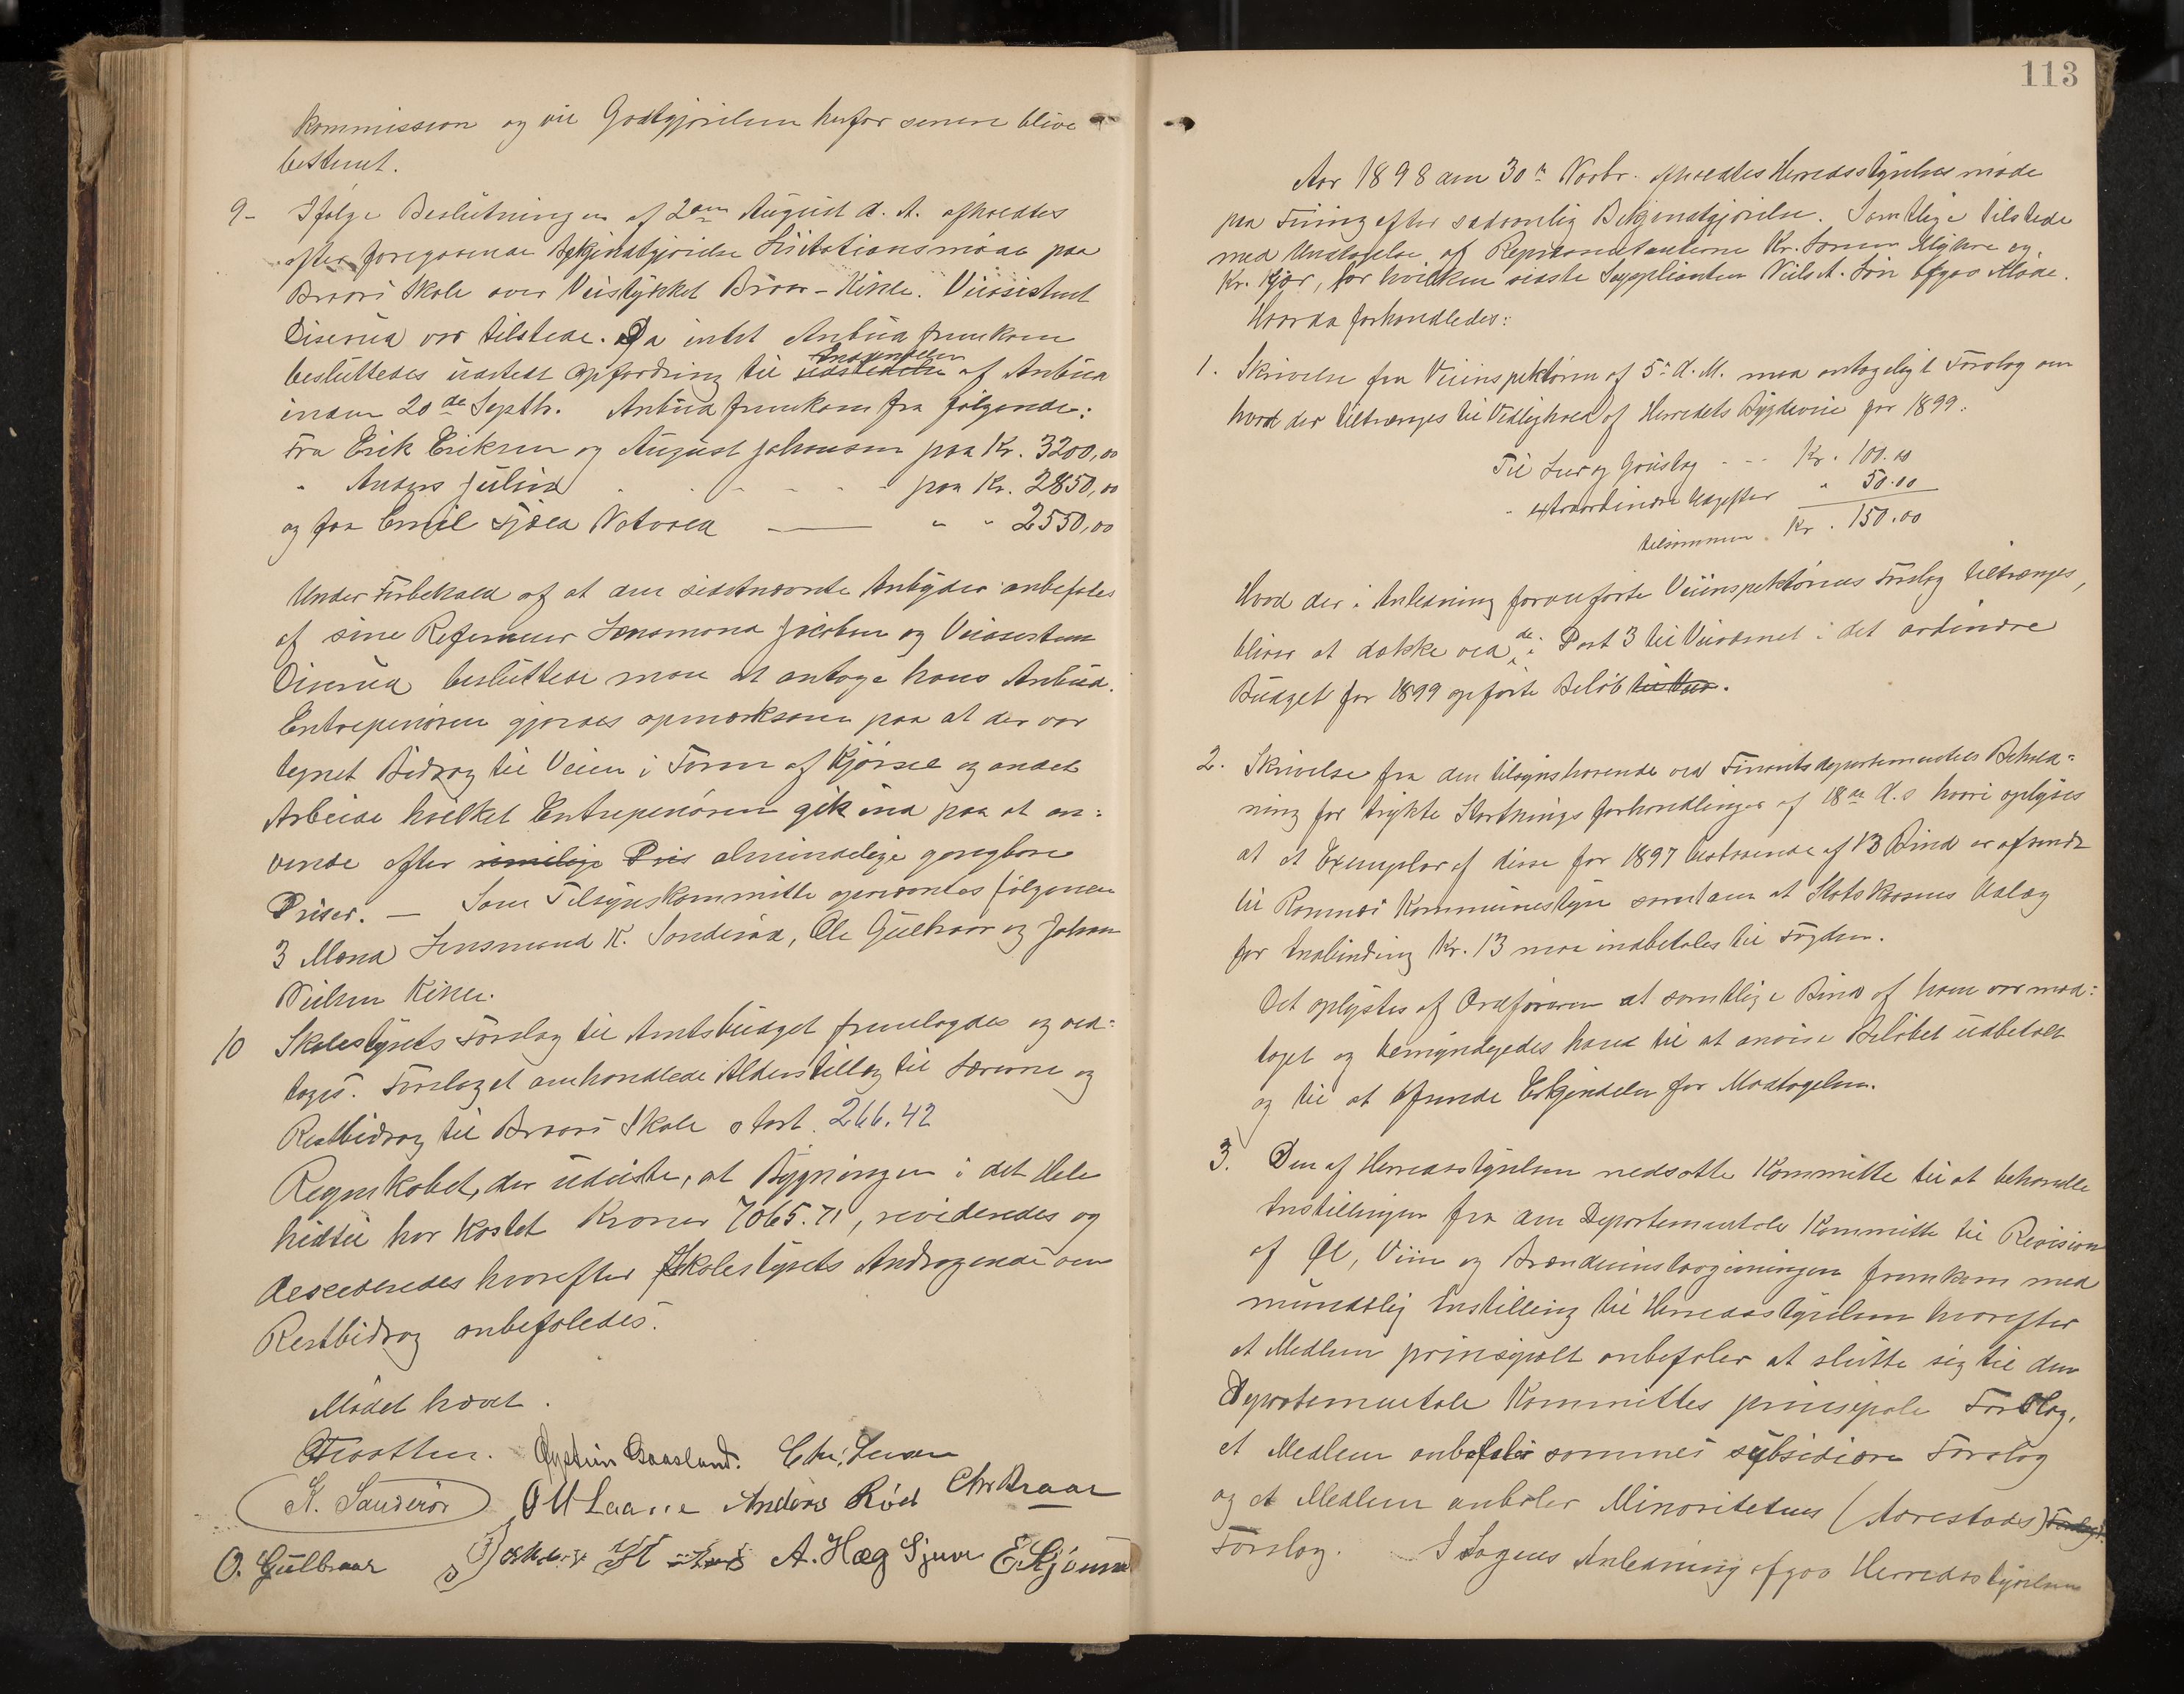 kommission og vil Godtgjørelsen herfor senere blive
bestemt.
9- Ifølge Beslutningen af 2den August d. A. afholdtes
efter foregaaende Bekjendtgjørelse Lisitationsmøde paa
Braarø Skole over Veistykket Braar - Kinle. Veiassistent
Diserud var tilstede. Da intet Anbud fremkom
besluttedes udstedt Opfordring til Indsendelse af Anbud
inden 20de Septbr. Anbud fremkom fra følgende:
Fra Erik Eriksen og August Johansen paa Kr. 3200,00
" Anders Julin - - - - paa Kr. 2850,00
og fra Emil Fjæld Notvold — " " 2550,00
Under Forbehold af at den sidstnævnte Anbyder anbefales
af sine Referencer Lensmand Jacobsen og Veiassistent
Diserud besluttede man at antage hans Anbud.
Entrepenøren gjordes opmærksom paa at der var
tegnet Bidrag til Veien i Form af Kjørsel og andet
Arbeide hvilket Entrepenøren gik ind paa at an=
vende efter rimelige Pris almindelige gangbare
Priser. — Som Tilsynskommitte opnævntes følgende
3 Mænd Lensmand K. Sanderød, Ole Gulbraar og Johan
Nielsen Kinn.
10 Skolestyrets Forslag til Amtsbudget fremlagdes og ved=
toges. Forslaget omhandlede Alderstillæg til Lærerne og
Restbidrag til Braarø Skole stort 266.42
Regnskabet, der udviste, at Bygningen i det Hele
hidtil har kostet Kroner 7065.71, revideredes og
desciderdes hvorefter Skolestyrets Andragende om
Restbidrag anbefaledes.
Mødet hævet.
Øystein Gaasland. Chr. Lersen
K. Sanderød O M Laane Anders Rød Chr Braar
O. Gulbraar A. Hæg Sjuve E. Skjønne
113
Aar 1898 den 30te Novbr. afholdtes Herredsstyrelsesmøde
paa Fining efter sædvanlig Bekjendtgjørelse. Samtlige tilstede
med Undtagelse af Repræsentanterne Kr. Sørum Klykre og
Kr. Kjær, for hvilken sidste Supplianten Niels A. Søn afgav Møde.
Hvorda forhandledes:
1. Skrivelse fra Veiinspektøren af 5te d. M. med antageligt Forslag om
hvad der tiltrænges til Vedligehold af Herredets Bygdeveie for 1899.
Til Leer og Gruslag - - - Kr. 100.00
" extraordinære Udgifter " 50.00
tilsammen Kr. 150.00
Hvad der i Anledning foranførte Veiinspektørens Forslag tiltrænges,
bliver at dække ved de i Post 3 til Veivæsenet i det ordinære
Budget for 1899 opførte Beløb.
2. Skrivelse fra den tilsynshavende ved Finantsdepartementets Behold=
ning for trykte Storthingsforhandlinger af 18de d.s hvori oplyses
at et Exemplar af disse for 1897 bestaaende af 13 Bind er afsendt
til Ramnes Kommunestyre samt at Statskassens Udlæg
for Indbinding Kr. 13 maa indbetales til Fogden.
Det oplystes af Ordføreren at samtlige Bind af ham var mod=
taget og bemyndigedes han til at anvise Beløbet udbetalt
og til at afsende Erkjendelse for Modtagelsen.
3. Den af Herredsstyrelsen nedsatte Kommitte til at behandle
Indstillingen fra den Departementale Kommitte til Revision
af Øl, Vin og Brændevinslovgivningen fremkom med
mundtlig Indstilling til Herredsstyrelsen hvorefter
et Medlem principalt anbefaler at slutte sig til den
Departementale Kommittes principale Forslag,
et Medlem anbefaler sammes subsidiære Forslag
og et Medlem anbefaler Minoritetens (Aarestads)
Forslag. I Sagens Anledning afgav Herredsstyrelsen